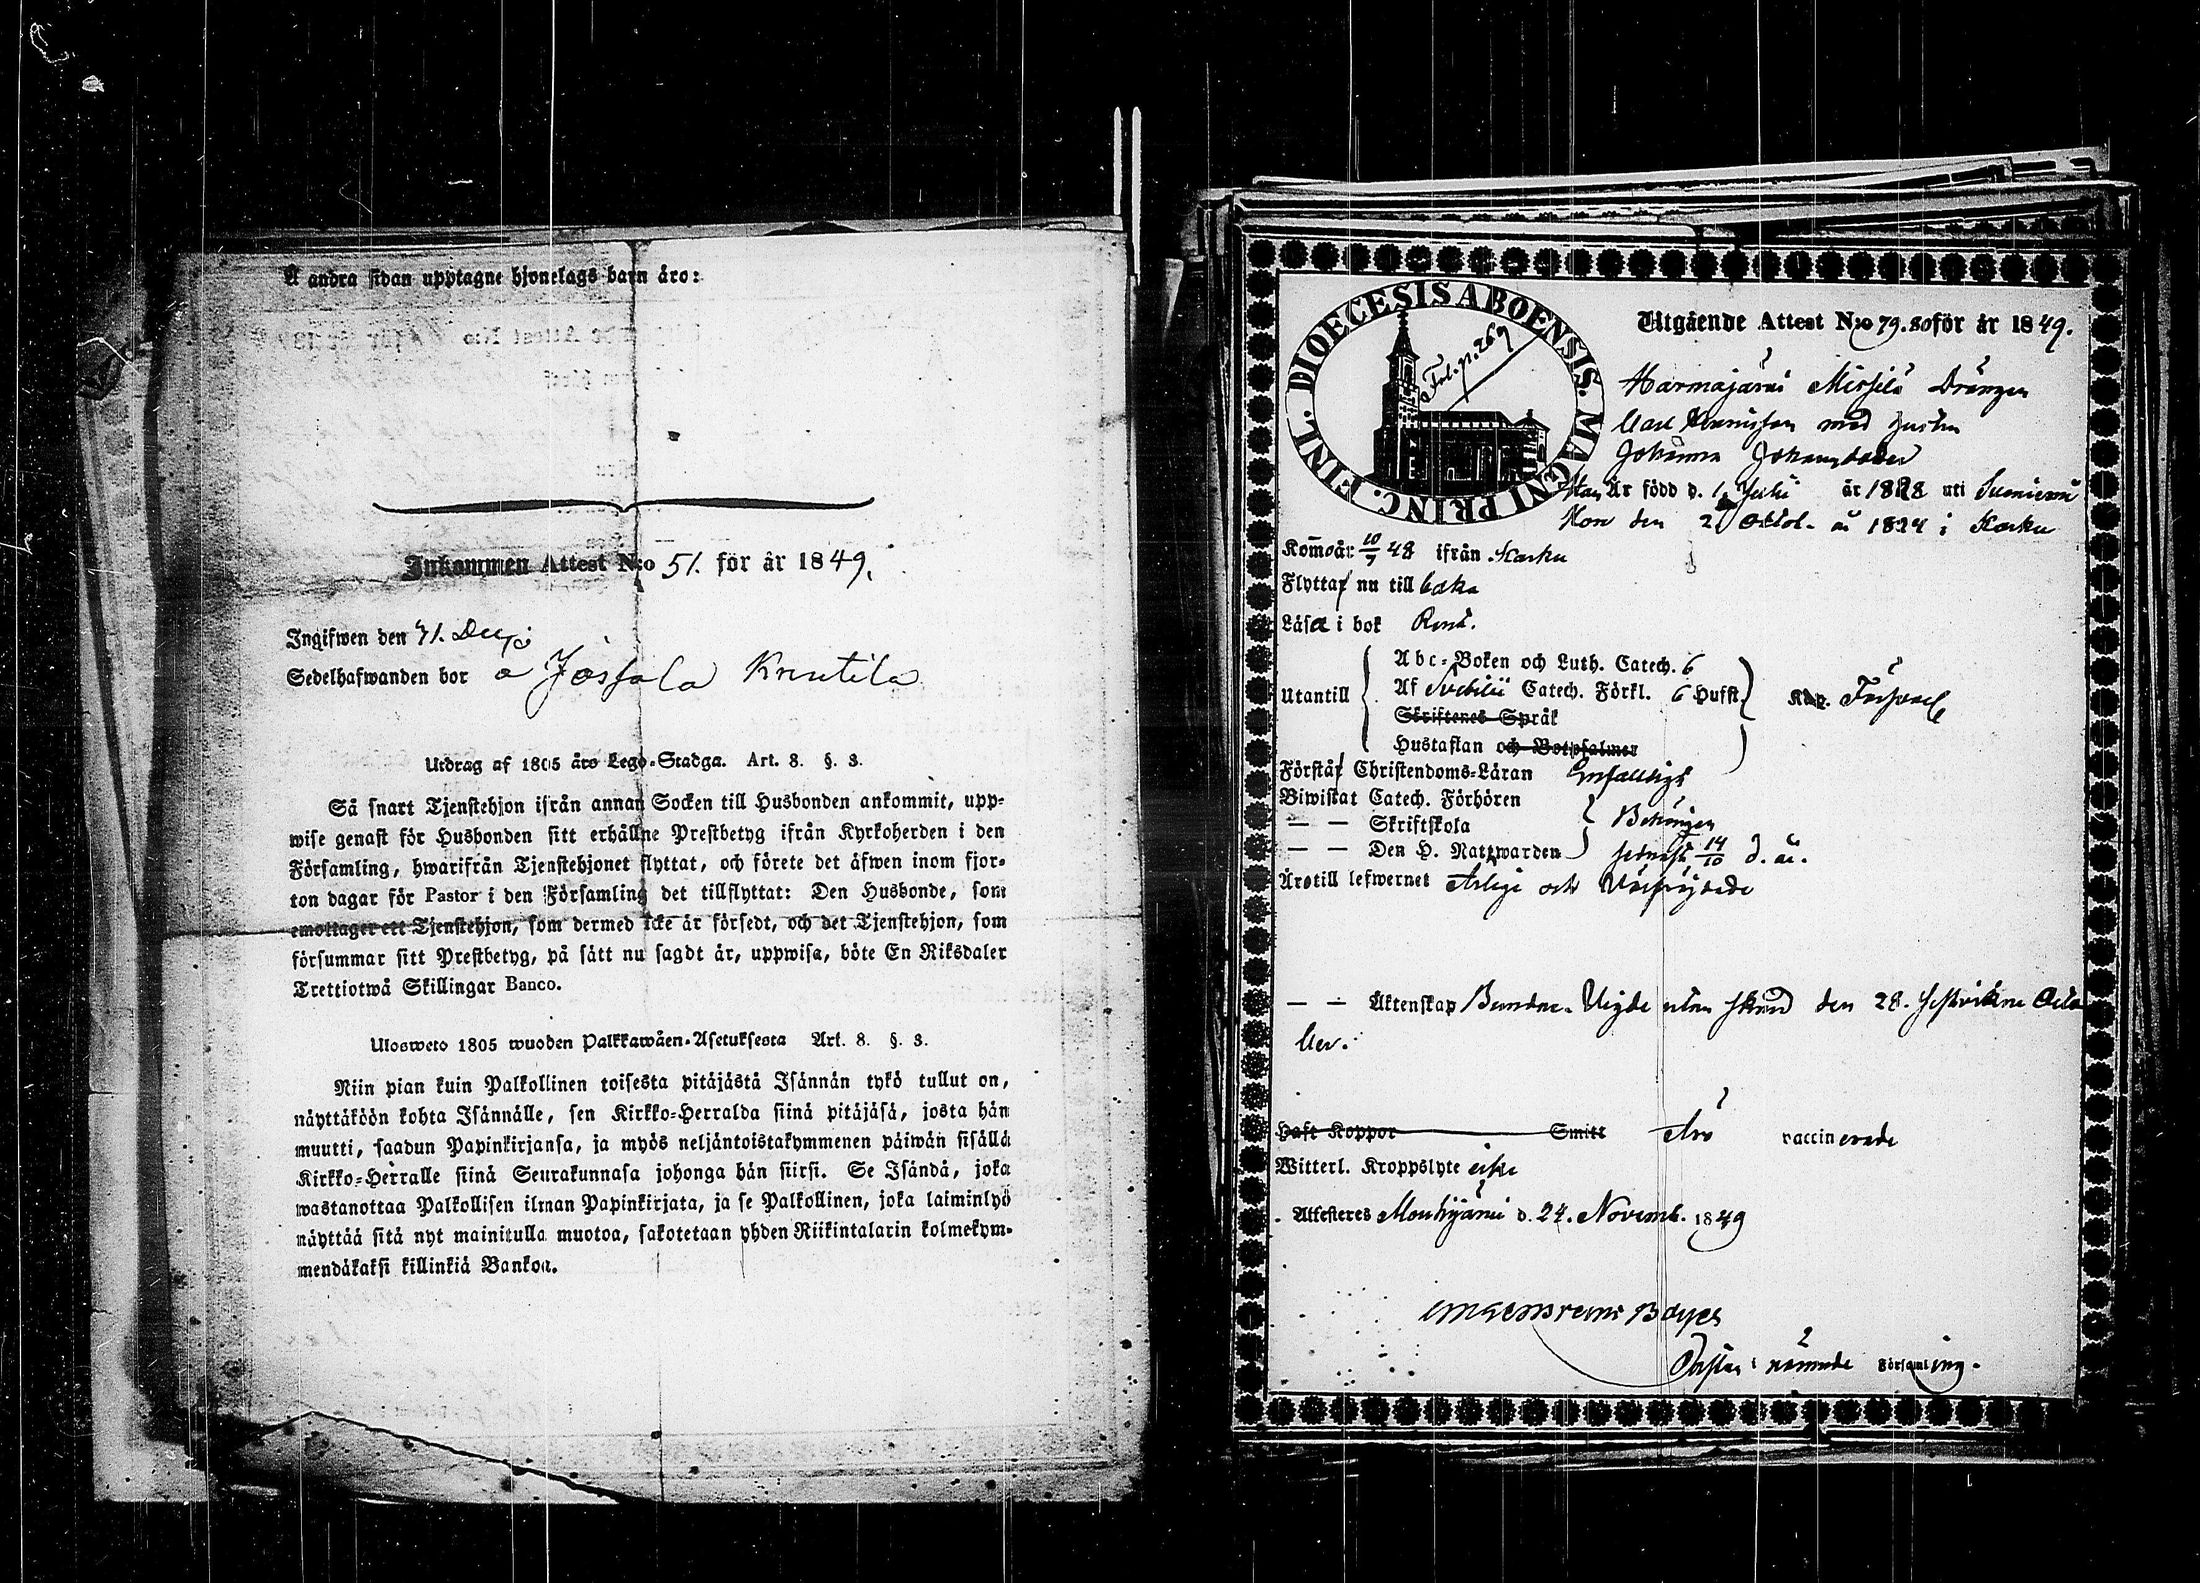 Å andra sidan upptagne hjonelags barn äro:
Inkommen Attest N:o 51. för år 1849.
Ingifwen den
Sedelhafwanden bor å Jossala Knutila
Utdrag af 1805 års Lego-Stadga. Art. 8. §. 3.
Så snart Tjenstehjon ifrån annan Socken till Husbonden ankommit, upp-
wise genast för Husbonden sitt erhållne Prestbetyg ifrån Kyrkoherden i den
Församling, hwarifrån Tjenstehjonet flyttat, och förete det äfwen inom fjor-
ton dagar för Pastor i den Församling det tillflyttat: Den Husbonde, som
emottager ett Tjenstehjon, som dermed icke är försedt, och det Tjenstehjon, som
försummar sitt Prestbetyg, på sätt nu sagdt är, uppwisa, böte En Riksdaler
Trettiotwå Skillingar Banco.
Ulosweto 1805 wuoden Palkkawäen-Asetuksesta Art. 8. §. 3.
Niin pian kuin Palkollinen toisesta pitäjästä Isännän tykö tullut on,
näyttäköön kohta Isännälle, sen Kirkko-Herralda siinä pitäjäsä, josta hän
muutti, saadun Papinkirjansa, ja myös neljäntoistakymmenen päiwän sisällä
Kirkko-Herralle siinä Seurakunnasa johonga hän siirsi. Se Isändä, joka
wastanottaa Palkollisen ilman Papinkirjata, ja se Palkollinen, joka laiminlyö
näyttää sitä nyt mainitulla muotoa, sakotetaan yhden Riikintalarin kolmekym-
mendäkaksi killinkiä Bankoa.
DIOECESIS ABOENSIS. MAGNI PRINC. FINL.
Fol. p. 267
Utgående Attest N:o 79. 80 för år 1849.
Harmajärvi Drängen
Carl med hustru
Johanna Johansdotter
Han Är född d. 1 Julii år 1828 uti Suniemi
Hon den 2 Octob. år 1824 i Karku
Kom år 10/7 48 ifrån Karku
Flytta nu till baka
Läsa i bok Rent.
Utantill
Abc-Boken och Luth. Catech. 6
Af Svebilii Catech. Förkl. 6 Hufst.
Skriftenes Språk
Hustaflan och Botpsalmer
Kap. Försvarl
Förstå Christendoms-Läran Enfalligt
Biwistat Catech. Förhören
— — Skriftskola
Behörigen
— — Den H. Nattwarden senast 14/10 d. år.
Äro till lefwernet Ärlige och Välfrejdade
— — Äktenskap Bundne. Vigde utan den 28. sistvikne Octo
ber.
Haft Koppor Smitt Äro vaccinerade
Witterl. Kroppslyte icke
Attesteres Mouhijärvi d. 24. Novemb. 1849
Pastor i nämnde Församling.